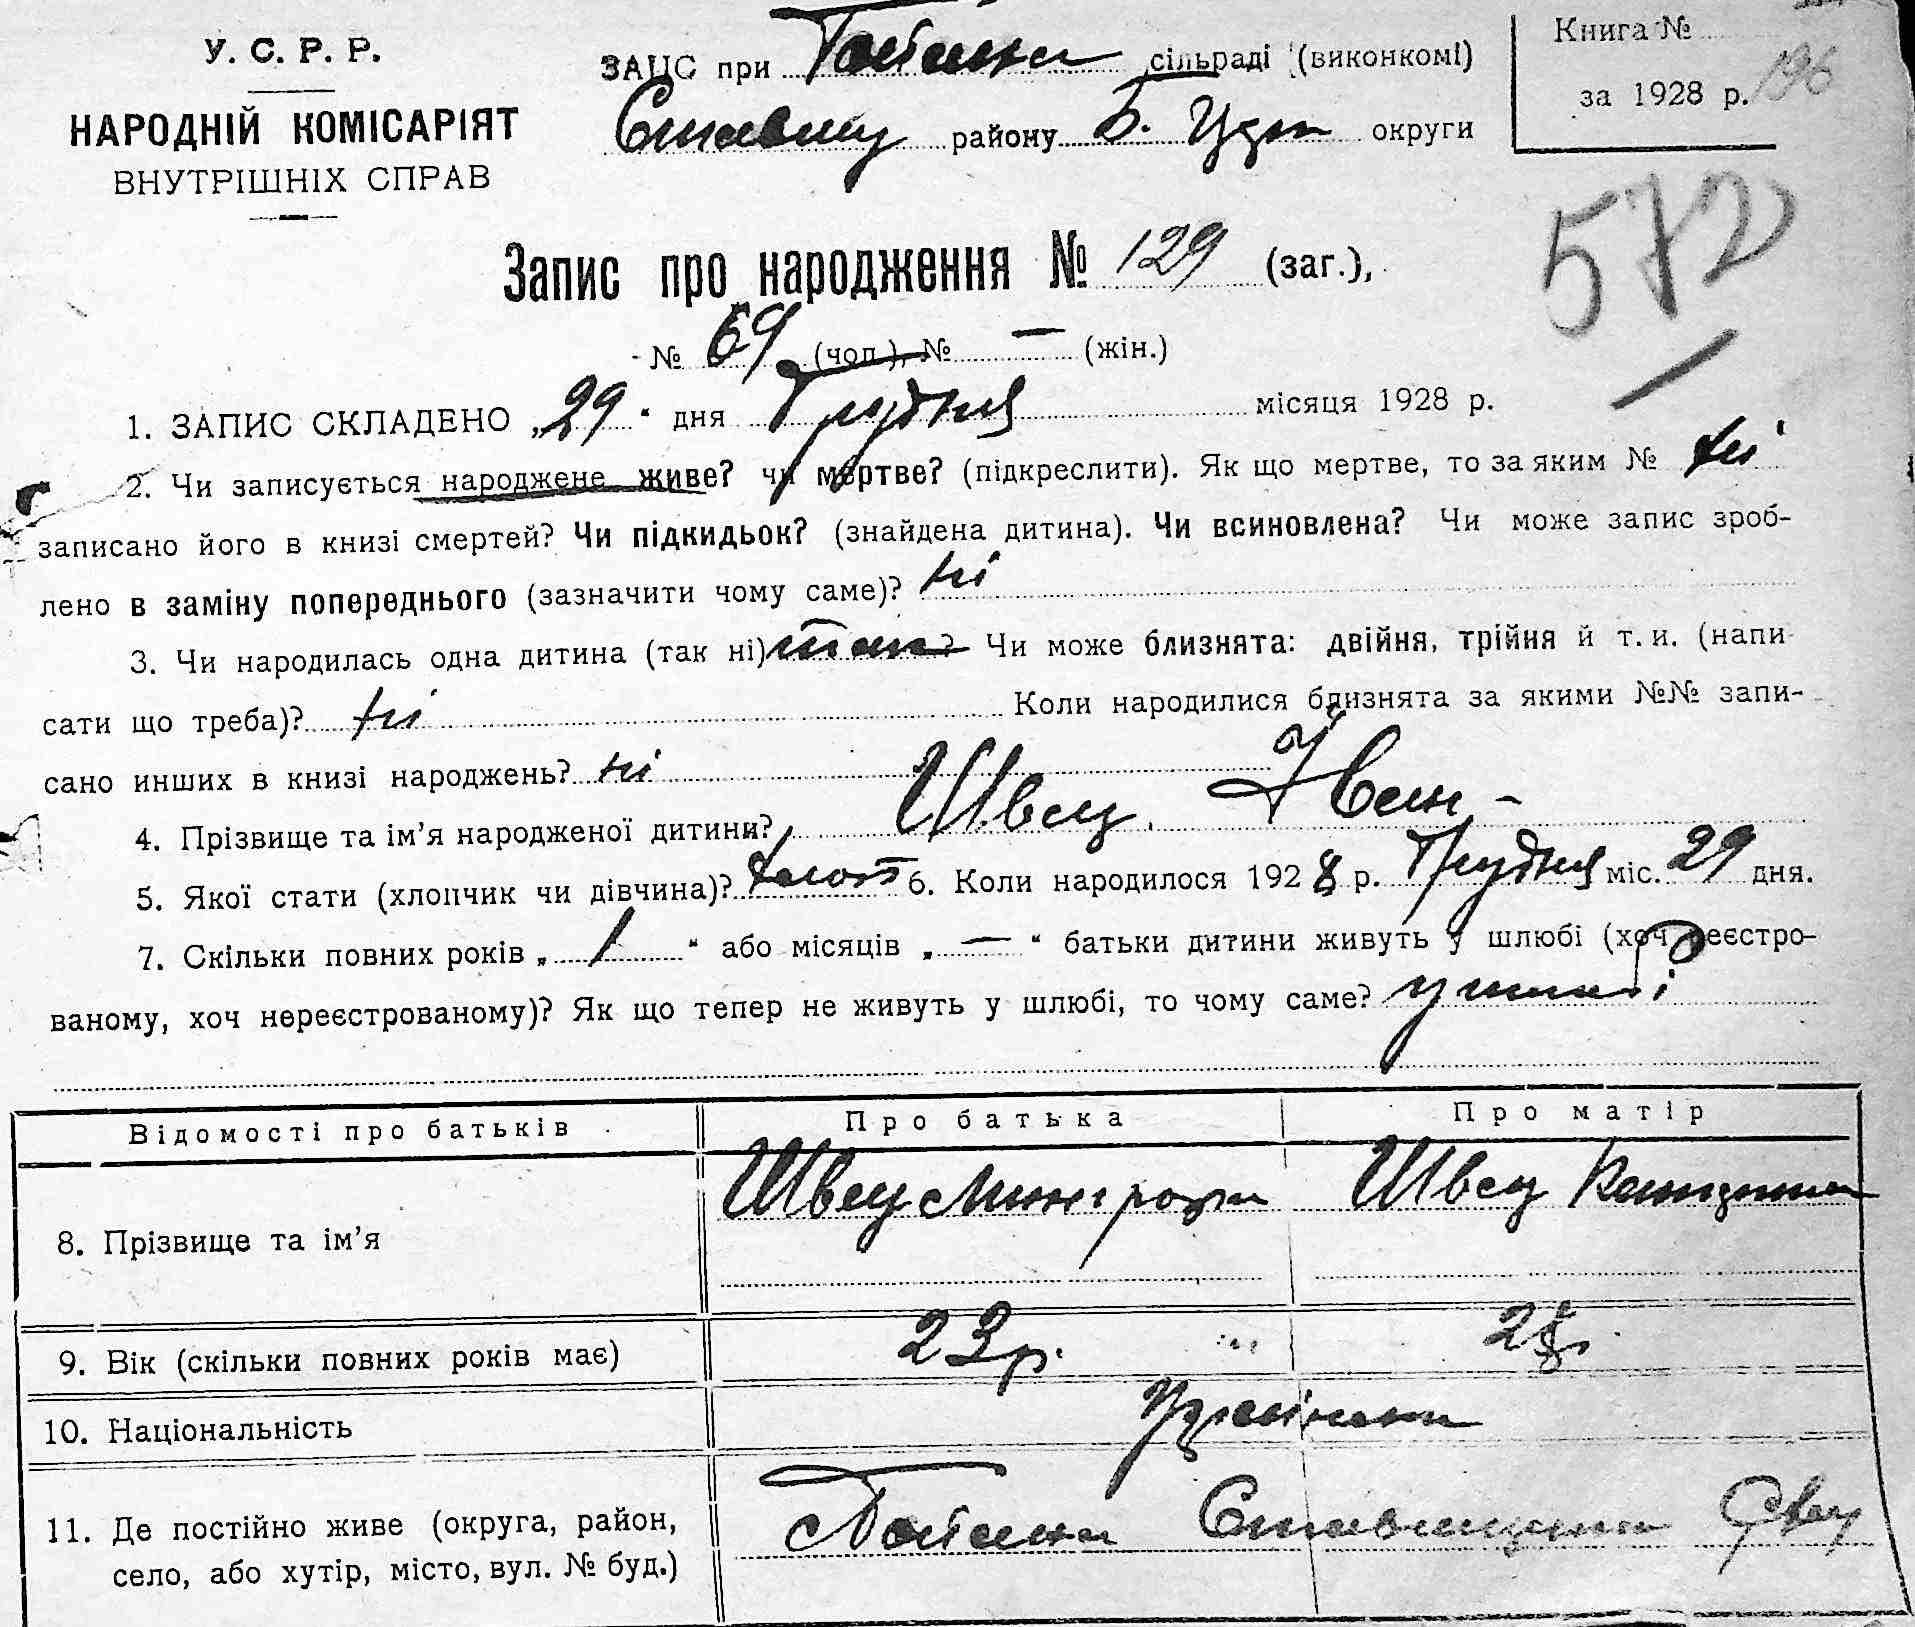 У. С. Р. Р.
НАРОДНІЙ КОМІСАРІЯТ
ВНУТРІШНІХ СПРАВ
ЗАЦС при сільраді (виконкомі)
району Б. округи
Книга №
за 1928 р. 196
572
Запис про народження № 129 (заг.),
№ 69 (чол.), № — (жін.)
1. ЗАПИС СКЛАДЕНО „29" дня Грудня місяця 1928 р.
2. Чи записується народжене живе? чи мертве? (підкреслити). Як що мертве, то за яким № ні
записано його в книзі смертей? Чи підкидьок? (знайдена дитина). Чи всиновлена? Чи може запис зроб-
лено в заміну попереднього (зазначити чому саме)? ні
3. Чи народилась одна дитина (так ні) так? Чи може близнята: двійня, трійня й т. и. (напи-
сати що треба)? ні Коли народилися близнята за якими №№ запи-
сано инших в книзі народжень? ні
4. Прізвище та ім'я народженої дитини? Швец Іван -
5. Якої стати (хлопчик чи дівчина)? 6. Коли народилося 1928 р. Грудня міс. 29 дня.
7. Скільки повних років „1" або місяців „—" батьки дитини живуть у шлюбі (хоч реєстро-
ваному, хоч нереєстрованому)? Як що тепер не живуть у шлюбі, то чому саме? у шлюбі
Відомості про батьків Про батька Про матір
8. Прізвище та ім'я Швец Швец
9. Вік (скільки повних років має) 23 р.
10. Національність
11. Де постійно живе (округа, район,
село, або хутір, місто, вул. № буд.)